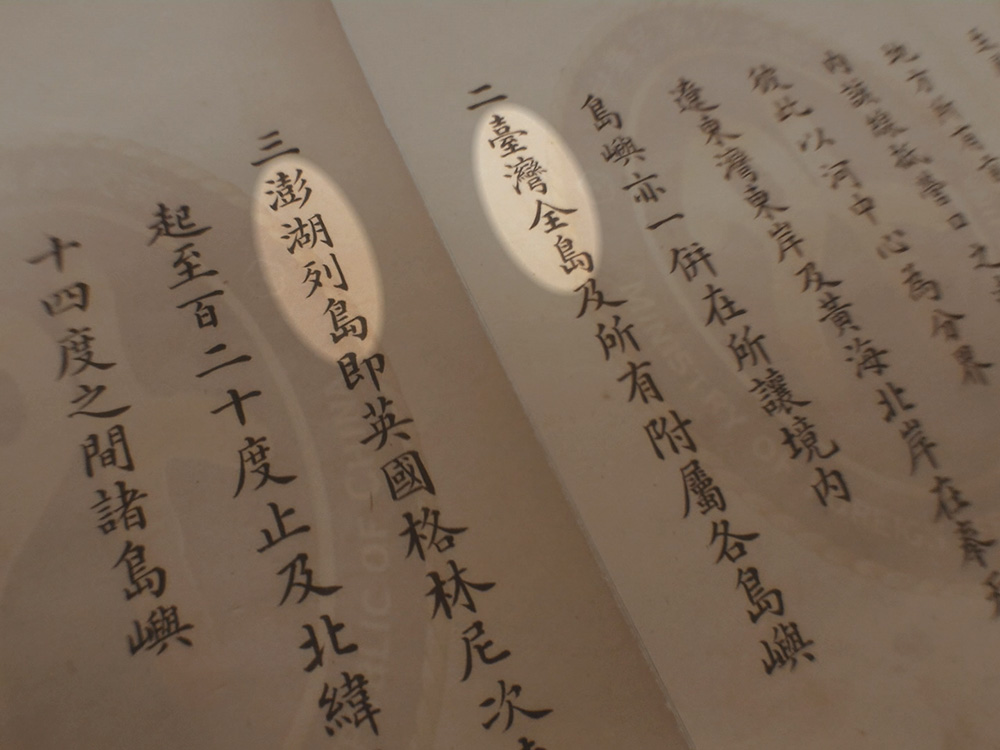 地方所有
內該線抵營口之
彼此以河中心為分界
遼東灣東岸及黃海北岸在奉
島嶼亦一併在所讓境內
二臺灣全島及所有附屬各島嶼
三澎湖列島即英國格林尼次
起至百二十度止及北緯
十四度之間諸島嶼
MINISTRY
OF CHINA